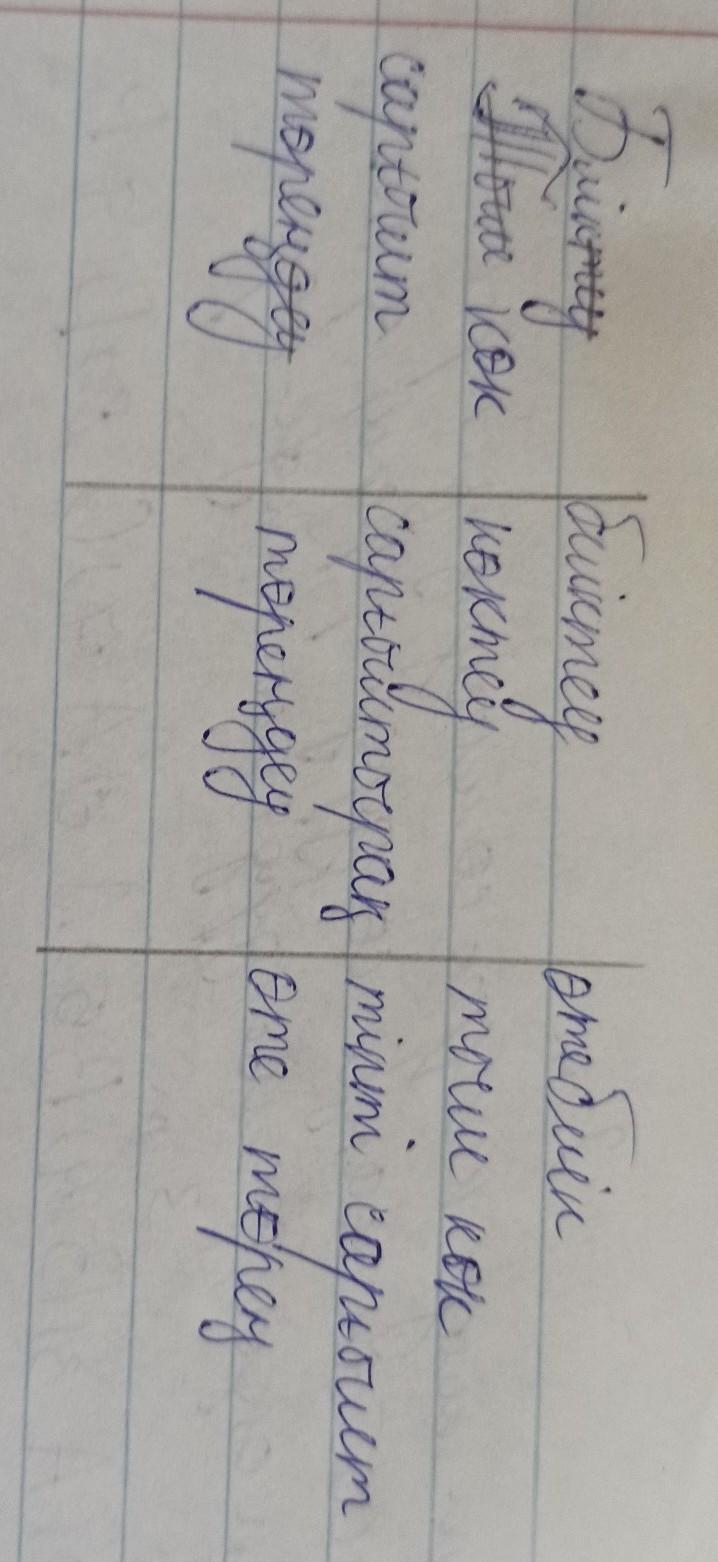 Биік биіктеу өте биік
көк көктеу тым көк
сарғыш сарғыштырақ тіпті сарғыш
терең тереңдеу өте терең